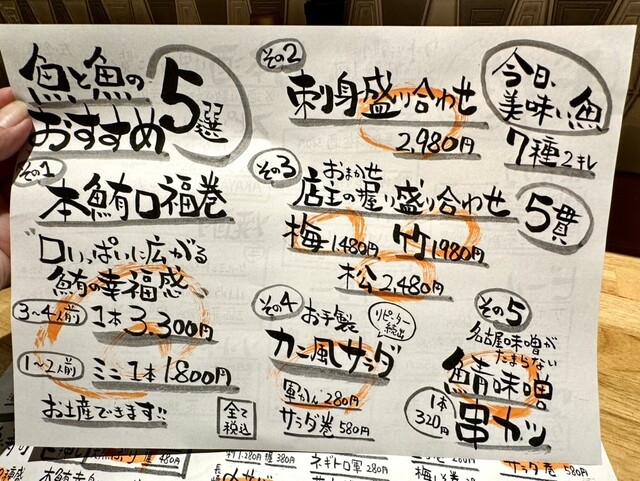 魚と魚の
おすすめ5選
その1
本鮪口福巻
"口いっぱいに広がる
鮪の幸福感"
3〜4人前 1本 3.300円
1〜2人前 ミニ1本1800円
お土産できます!!
全て税込
その2
刺身盛り合わせ
2,980円
今日、
美味い魚
7種2キレ
その3
おまかせ
店主の握り盛り合わせ
5貫
梅1480円 竹1980円
松2,480円
その4
お手製
リピーター続出
カニ風サラダ
軍かん280円
サラダ巻580円
その5
名古屋味噌が
たまらない
鯖味噌
串カツ
1本320円
480円
280円 握380円
ネギトロ軍280円
サラダ巻 580円